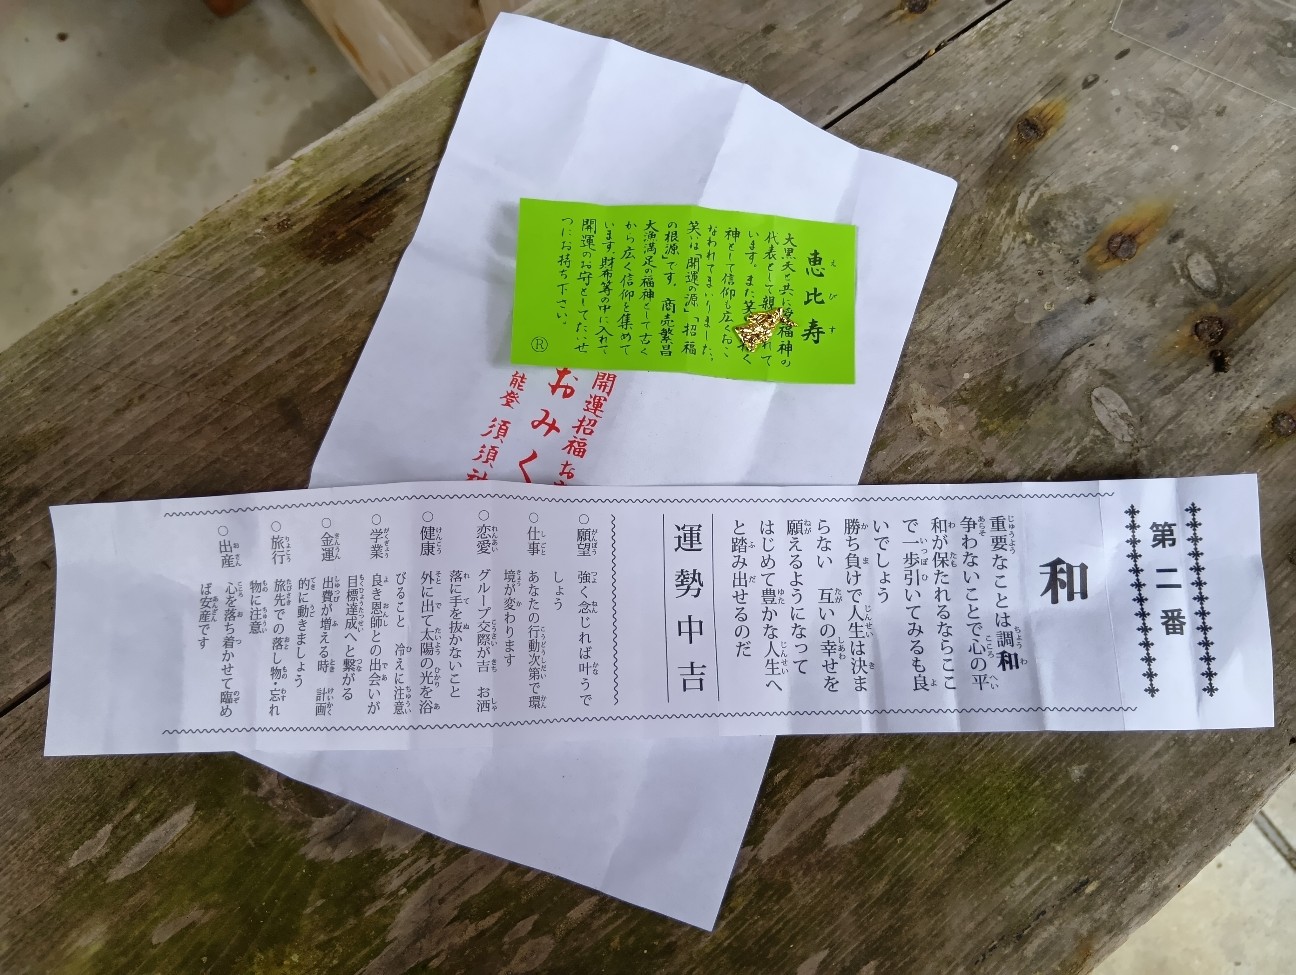 恵比寿
えびす
大黒天と共に福神の
代表として親れて
います。また笑く
神として信仰も広くおこ
なわれてまいりました。
笑いは「開運の源」「招福
の根源」です。商売繁昌
大漁満足の福神として古く
から広く信仰を集めて
います。財布等の中に入れて
開運のお守としてたいせ
つにお持ち下さい。
Ⓡ
開運招福お
おみく
能登 須須神
第二番
和
重要なことは調和
争わないことで心の平
和が保たれるならここ
で一歩引いてみるも良
いでしょう
勝ち負けで人生は決ま
らない 互いの幸せを
願えるようになって
はじめて豊かな人生へ
と踏み出せるのだ
運勢中吉
○願望 強く念じれば叶うで
しょう
○仕事 あなたの行動次第で環
境が変わります
○恋愛 グループ交際が吉 お洒
落に手を抜かないこと
○健康 外に出て太陽の光を浴
びること 冷えに注意
○学業 良き恩師との出会いが
目標達成へと繋がる
○金運 出費が増える時 計画
的に動きましょう
○旅行 旅先での落し物・忘れ
物に注意
○出産 心を落ち着かせて臨め
ば安産です